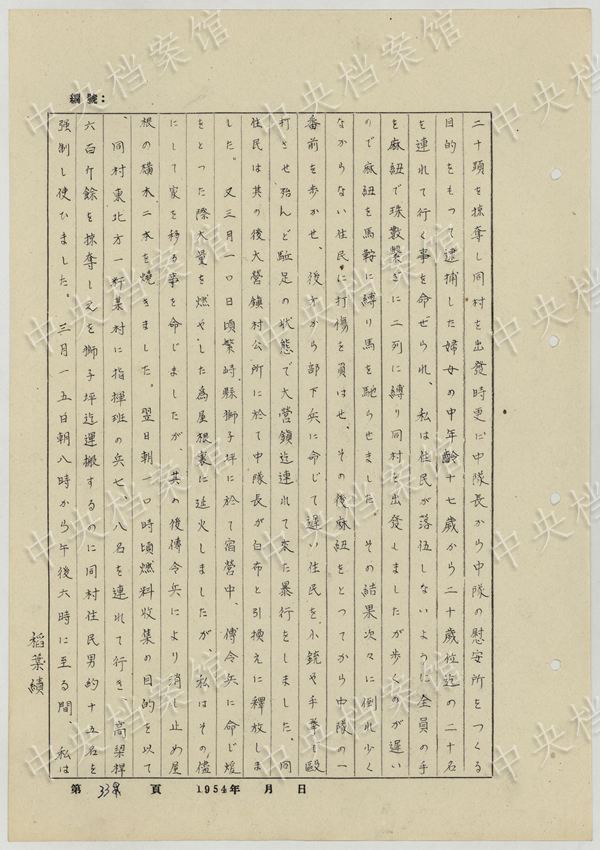 編號:
二十頭を掠奪し同村を出發時更に中隊長から中隊の慰安所をつくる
目的をもつて逮捕した婦女の中年齢十七歳から二十歳位迄の二十名
を連れて行く事を命ぜられ、私は住民が落伍しないように全員の手
を麻紐で珠数繋ぎに二列に縛り同村を出發しましたが歩くのが遅い
ので麻紐を馬鞍に縛り馬を馳らせました。その結果次々に倒れ少く
なからない住民に打傷を負はせ、その後麻紐をとつてから中隊の一
番前を歩かせ、後方から部下兵に命じて遅い住民を、小銃や手拳で毆
打させ殆んど駈足の状態で大営鎮迄連れて来た暴行をしました。同
住民は其の後大営鎮村公所に於て中隊長が白布と引換えに釋放しま
した。又三月一〇日頃繁峙縣獅子坪に於て宿営中、傳令兵に命じ煖
をとつた際大量を燃やした為屋根裏に延火しましたが、私はその儘
にして家を移る事を命じましたが、其の後傳令兵により消し止め屋
根の横木二本を燒きました。翌日朝一〇時頃燃料收集の目的を以て
、同村東北方一粁某村に指揮班の兵七、八名を連れて行き、高梁桿
六百ケ餘を掠奪し之を獅子坪迄運搬するのに同村住民男約十五名を
强制し使ひました。三月一五日朝八時から午後六時に至る間、私は
稻葉績
第 33 頁 1954年 月 日
中央档案馆